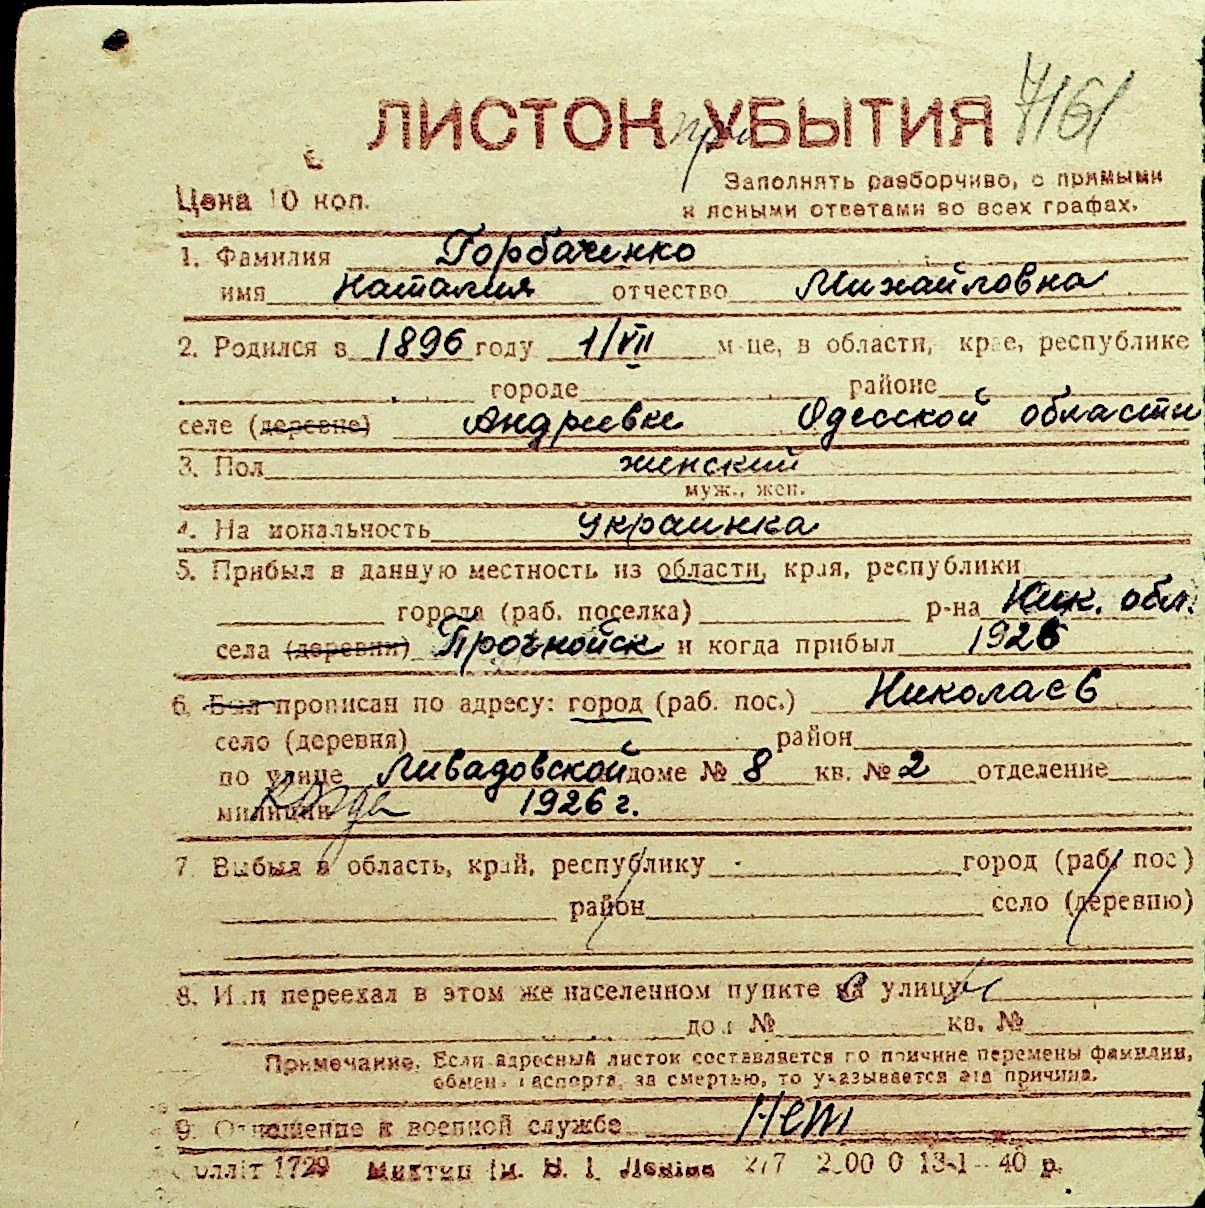 ЛИСТОК УБЫТИЯ 7161
при
Цена 10 коп.
Заполнять разборчиво, с прямыми
и ясными ответами во всех графах.
1. Фамилия Горбаченко
имя Наталия отчество Михайловна
2. Родился в 1896 году 1/VII м-це, в области, крае, республике
городе районе
селе (деревне) Андреевке Одесской области
3. Пол женский
муж., жен.
4. Национальность украинка
5. Прибыл в данную местность из области, края, республики
города (раб. поселка) р-на Ник. обл.
села (деревни) Прогнойск и когда прибыл 1926
6. Был прописан по адресу: город (раб. пос.) Николаев
село (деревня) район
по улице Ливадовской доме № 8 кв. № 2 отделение
милиции когда 1926 г.
7. Выбыл в область, край, республику город (раб. пос)
район село (деревню)
8. Или переехал в этом же населенном пункте на улицу
дом № кв. №
Примечание. Если адресный листок составляется по причине перемены фамилии,
обмен паспорта, за смертью, то указывается эта причина.
9. Отношение к военной службе Нет
1729 ім. В. І. Леніна 40 р.